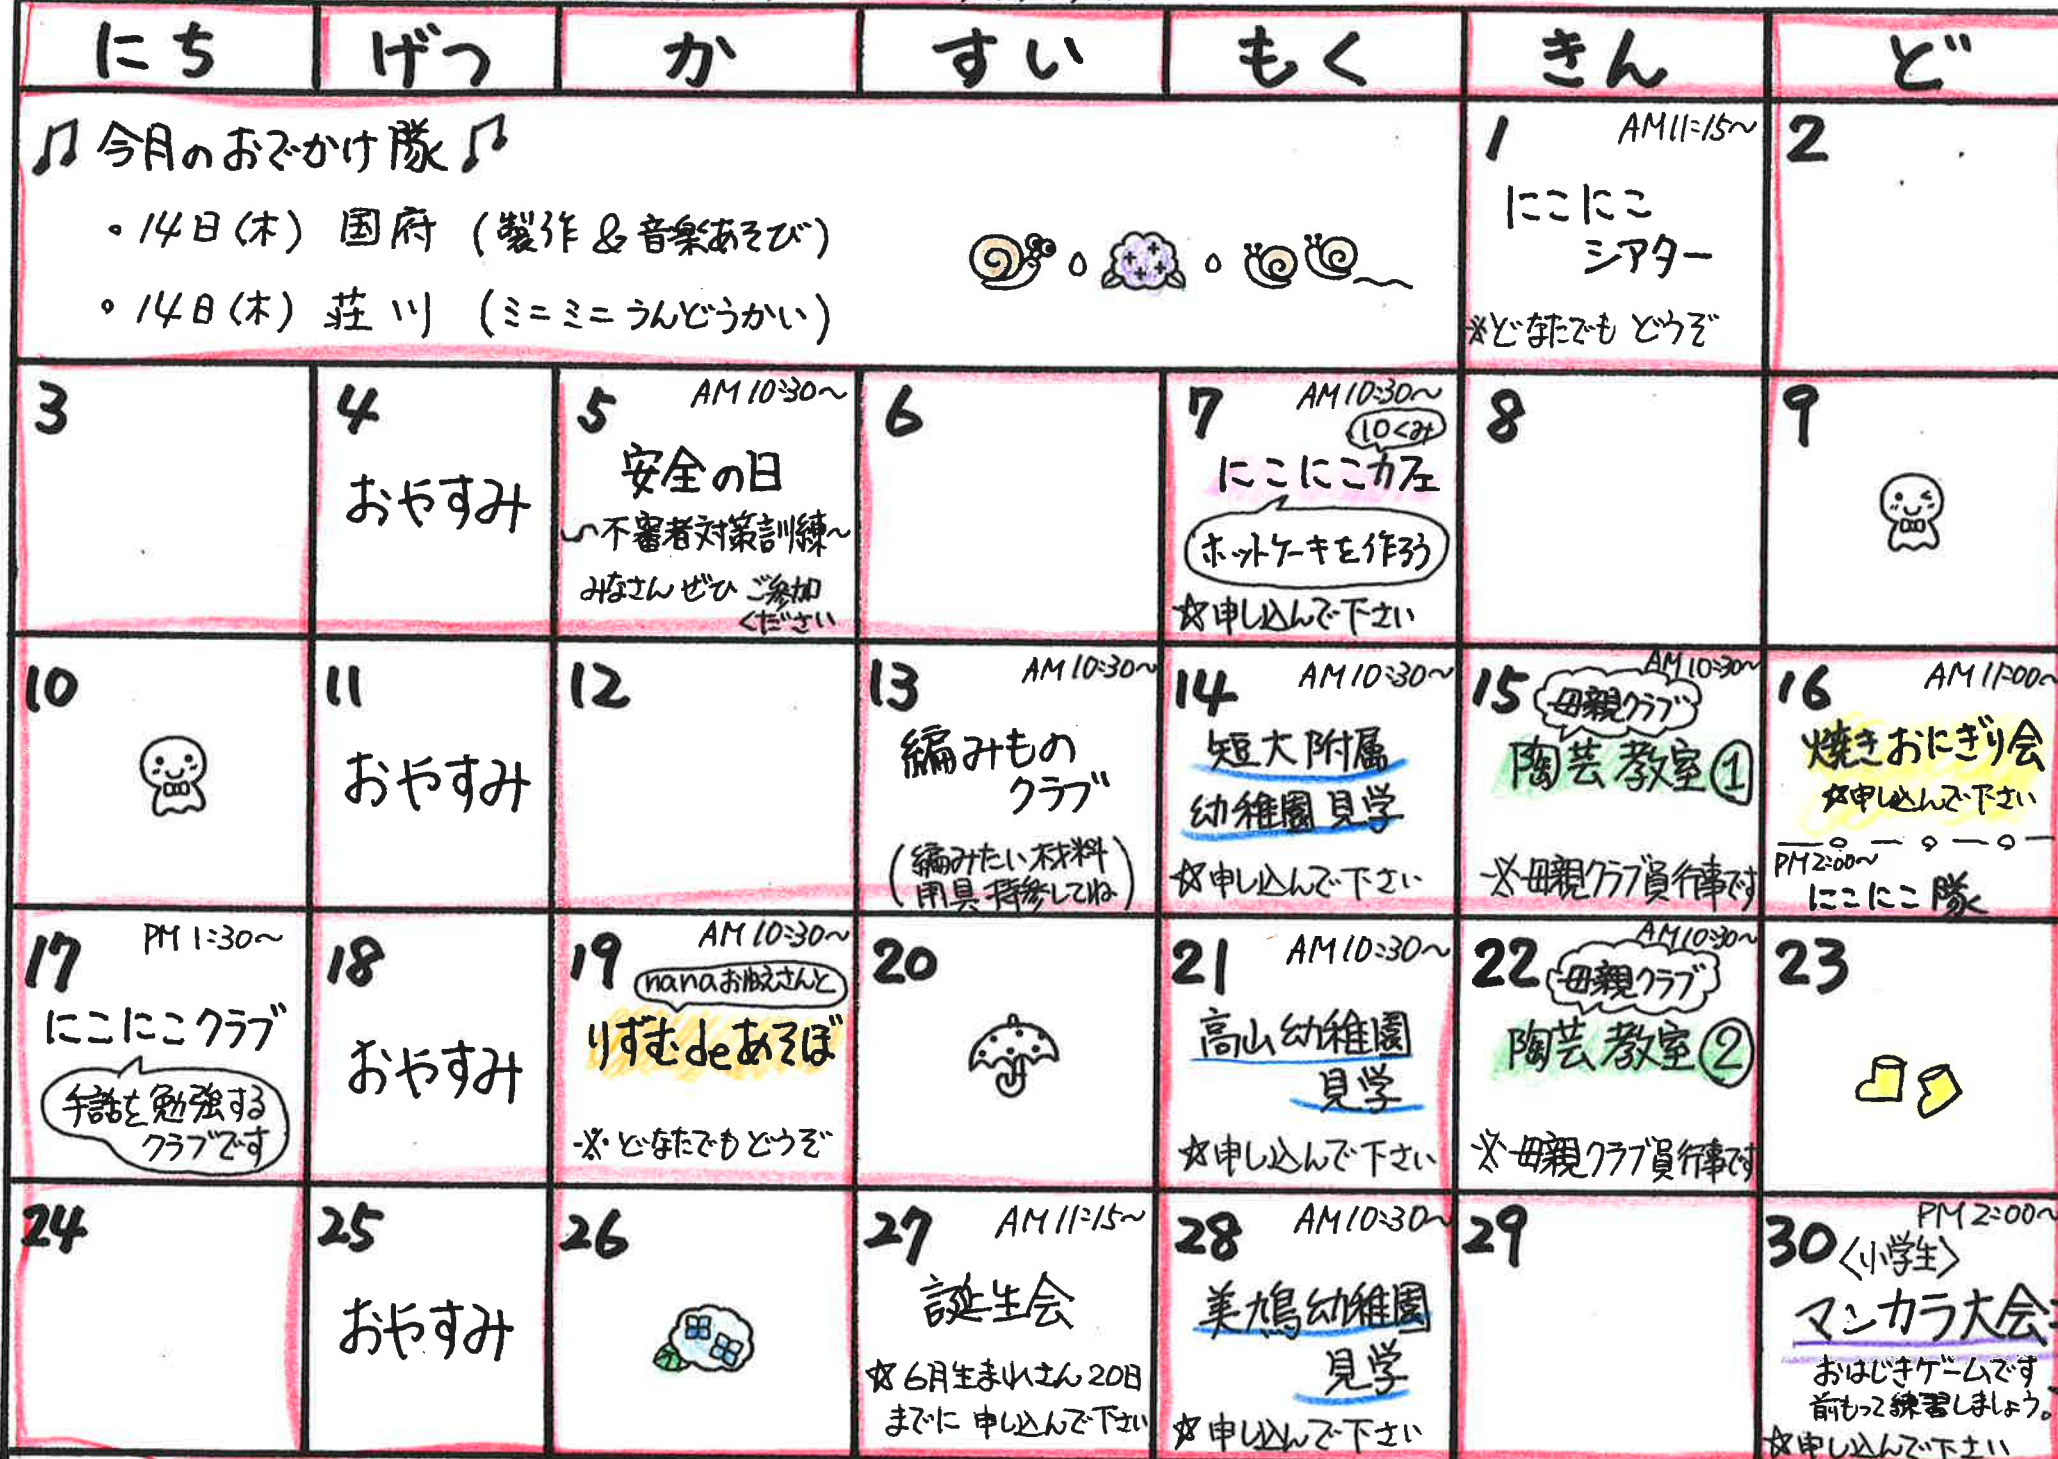 にち げつ か すい もく きん ど
♫ 今月のおでかけ隊 ♫
・14日(木) 国府 (製作&音楽あそび)
・14日(木) 荘川 (ミニミニうんどうかい)
1 AM11:15~
にこにこ
シアター
※どなたでも どうぞ
2
3
4
おやすみ
5 AM10:30~
安全の日
~不審者対策訓練~
みなさん ぜひ ご参加
ください
6
7 AM10:30~
10くみ
にこにこカフェ
ホットケーキを作ろう
☆申し込んで下さい
8
9
10
11
おやすみ
12
13 AM10:30~
編みもの
クラブ
(編みたい材料
用具 持参してね)
14 AM10:30~
短大附属
幼稚園 見学
☆申し込んで下さい
15 AM10:30~
母親クラブ
陶芸教室①
※母親クラブ員行事です
16 AM11:00~
焼きおにぎり会
☆申し込んで下さい
PM2:00~
にこにこ隊
17 PM1:30~
にこにこクラブ
手話を勉強する
クラブです
18
おやすみ
19 AM10:30~
nanaおねえさんと
りずむdeあそぼ
※どなたでもどうぞ
20
21 AM10:30~
高山幼稚園
見学
☆申し込んで下さい
22 AM10:30~
母親クラブ
陶芸教室②
※母親クラブ員行事です
23
24
25
おやすみ
26
27 AM11:15~
誕生会
☆6月生まれさん20日
までに 申し込んで下さい
28 AM10:30~
美鳩幼稚園
見学
☆申し込んで下さい
29
30 PM2:00~
〈小学生〉
マンカラ大会
おはじきゲームです
前もって練習しましょう。
☆申し込んで下さい